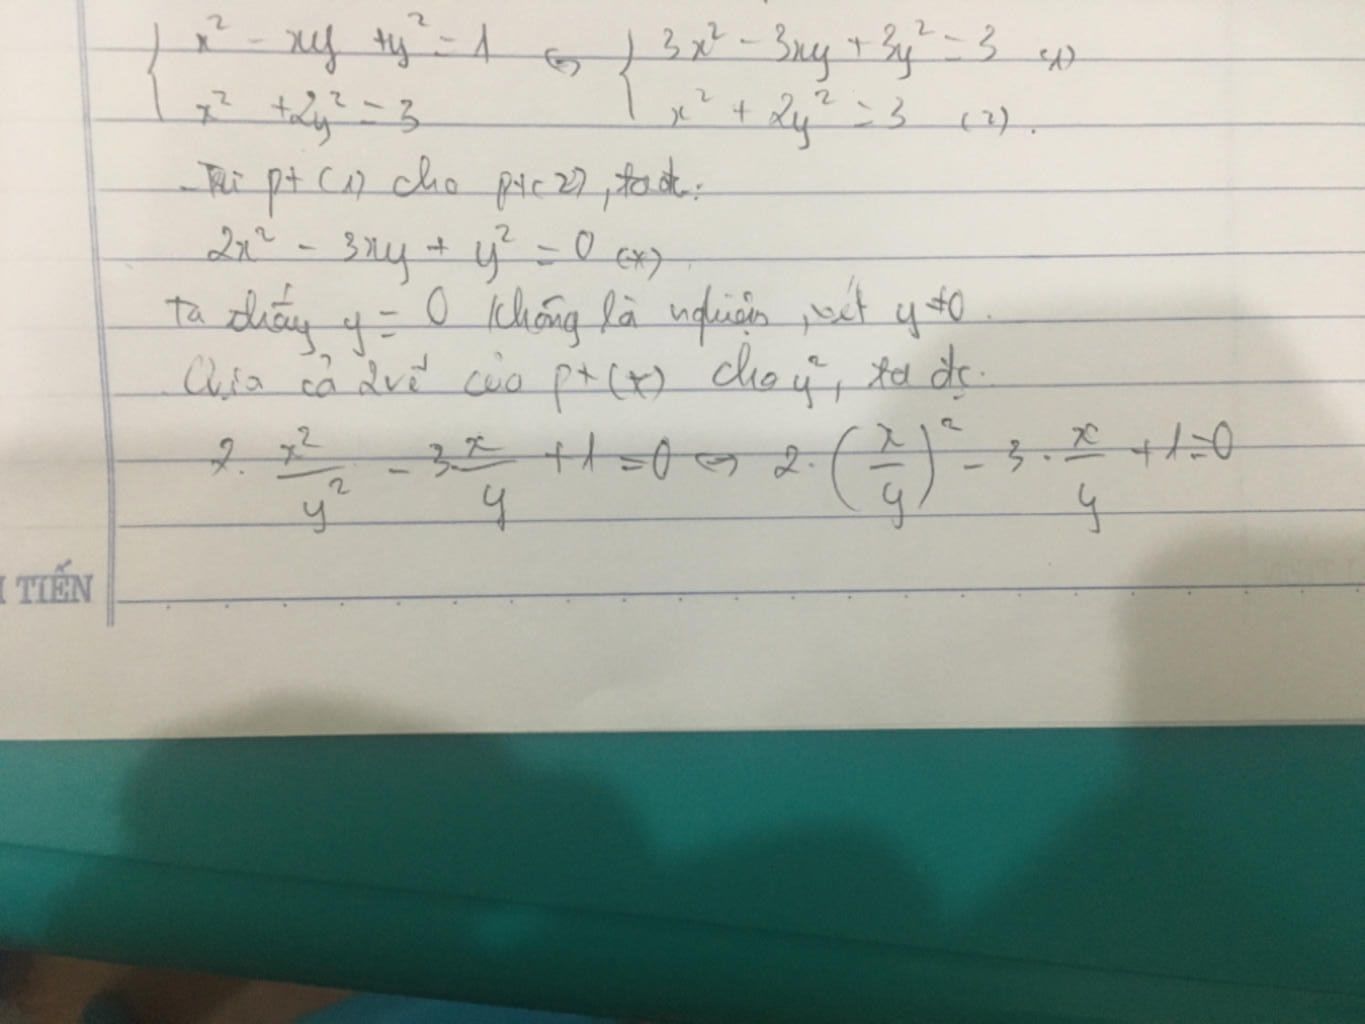 { x² - xy + y² = 1 ⇔ { 3x² - 3xy + 3y² = 3 (1)
x² + 2y² = 3 x² + 2y² = 3 (2).
- Trừ pt (1) cho pt (2), ta đc:
2x² - 3xy + y² = 0 (*)
Ta thấy y = 0 không là nghiệm, xét y ≠ 0.
Chia cả 2 vế của pt (*) cho y², ta đc.
2. x²/y² - 3 x/y + 1 = 0 ⇔ 2. (x/y)² - 3. x/y + 1 = 0
TIẾN